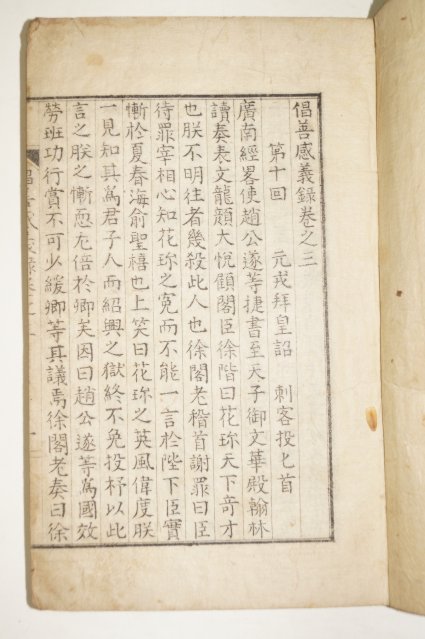 倡善感義錄卷之三
第十回 元戎拜皇詔 刺客投匕首
廣南經畧使趙公遂等捷書至天子御文華殿翰林
讀奏表文龍顔大悅顧閣臣徐階曰花珎天下奇才
也朕不明往者幾殺此人也徐閣老稽首謝罪曰臣
待罪宰相心知花珎之寃而不能一言於陛下臣實
慚於夏春海俞聖禧也上笑曰花珎之英風偉度朕
一見知其爲君子人而紹興之獄終不免投杼以此
言之朕之慚恧尤倍於卿矣因曰趙公遂等爲國效
勞班功行賞不可少緩卿等其議焉徐閣老奏曰徐